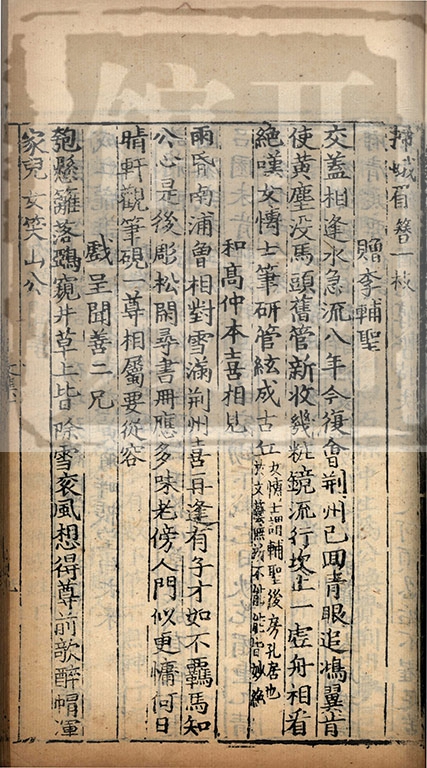 掃蛾眉簪一枝
贈李輔聖
交蓋相逢水急流八年今復會荆州已回青眼追鴻翼肯
使黃塵没馬頭舊管新收幾粧鏡流行坎止一虛舟相看
絶嘆女博士筆研管絃成古丘女博士謂輔聖後房孔君也
於文藝無不能皆妙絶
和高仲本喜相見
雨昏南浦曾相對雪滿荆州喜再逢有子才如不羈馬知
公心是後彫松閑尋書册應多味老傍人門似更慵何日
晴軒觀筆硯一尊相屬要從容
戲呈聞善二兄
匏懸籬落鵶窺井草上皆除雪袞風想得尊前歌醉帽渾
家兒女笑山公